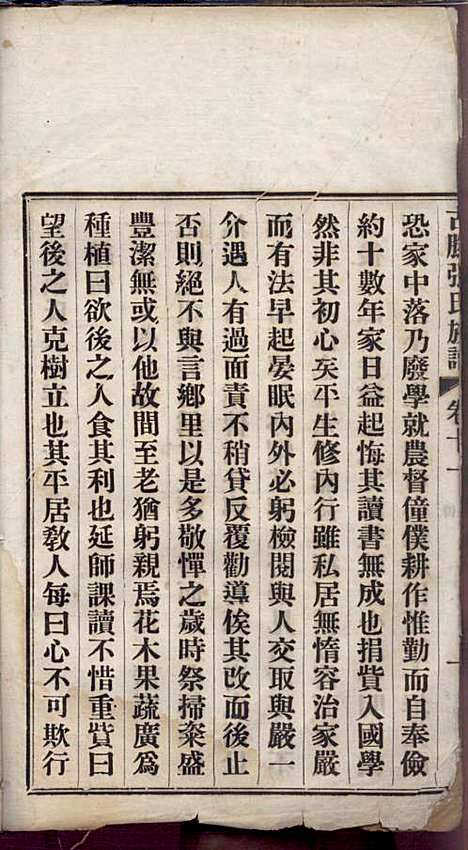 張氏族譜 卷十一
恐家中落乃廢學就農督僮僕耕作惟勤而自奉儉
約十數年家日益起悔其讀書無成也捐貲入國學
然非其初心矣平生修內行雖私居無惰容治家嚴
而有法早起晏眠內外必躬檢閱與人交取與嚴一
介遇人有過面責不稍貸反覆勸導俟其改而後止
否則絕不與言鄉里以是多敬憚之歲時祭掃粢盛
豐潔無或以他故間至老猶躬親焉花木果蔬廣為
種植曰欲後之人食其利也延師課讀不惜重貲曰
望後之人克樹立也其平居敎人每曰心不可欺行